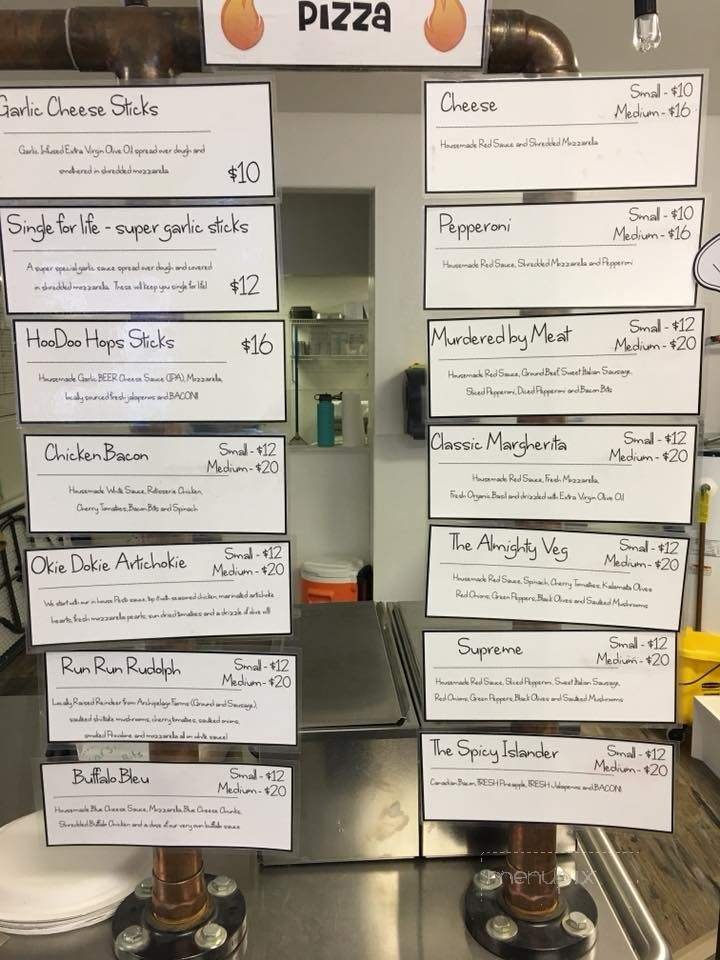 PIZZA
Garlic Cheese Sticks
Garlic Infused Extra Virgin Olive Oil spread over dough and
smothered in shredded mozzarella
$10
Single for life - super garlic sticks
A super special garlic sauce spread over dough and covered
in shredded mozzarella. These will keep you single for life!
$12
HooDoo Hops Sticks
$16
Housemade Garlic BEER Cheese Sauce (IPA), Mozzarella,
locally sourced fresh jalapenos and BACON!
Chicken Bacon
Small - $12
Medium - $20
Housemade White Sauce, Rotisserie Chicken,
Cherry Tomatoes, Bacon Bits and Spinach
Okie Dokie Artichokie
Small - $12
Medium - $20
We start with our in house Pesto sauce, top it with seasoned chicken, marinated artichoke
hearts, fresh mozzarella pearls, sun dried tomatoes and a drizzle of olive oil!
Run Run Rudolph
Small - $12
Medium - $20
Locally Raised Reindeer from Archipelago Farms (Ground and Sausage),
sautéed shiitake mushrooms, cherry tomatoes, sautéed onions,
smoked Provolone and mozzarella all on white sauce!
Buffalo Bleu
Small - $12
Medium - $20
Housemade Blue Cheese Sauce, Mozzarella, Blue Cheese Chunks,
Shredded Buffalo Chicken and a dose of our very own buffalo sauce
Cheese
Small - $10
Medium - $16
Housemade Red Sauce and Shredded Mozzarella
Pepperoni
Small - $10
Medium - $16
Housemade Red Sauce, Shredded Mozzarella and Pepperoni
Murdered by Meat
Small - $12
Medium - $20
Housemade Red Sauce, Ground Beef, Sweet Italian Sausage,
Sliced Pepperoni, Diced Pepperoni and Bacon Bits
Classic Margherita
Small - $12
Medium - $20
Housemade Red Sauce, Fresh Mozzarella,
Fresh Organic Basil and drizzled with Extra Virgin Olive Oil
The Almighty Veg
Small - $12
Medium - $20
Housemade Red Sauce, Spinach, Cherry Tomatoes, Kalamata Olives
Red Onions, Green Peppers, Black Olives and Sautéed Mushrooms
Supreme
Small - $12
Medium - $20
Housemade Red Sauce, Sliced Pepperoni, Sweet Italian Sausage,
Red Onions, Green Peppers, Black Olives and Sautéed Mushrooms
The Spicy Islander
Small - $12
Medium - $20
Canadian Bacon, FRESH Pineapple, FRESH Jalapenos and BACON!
menupix